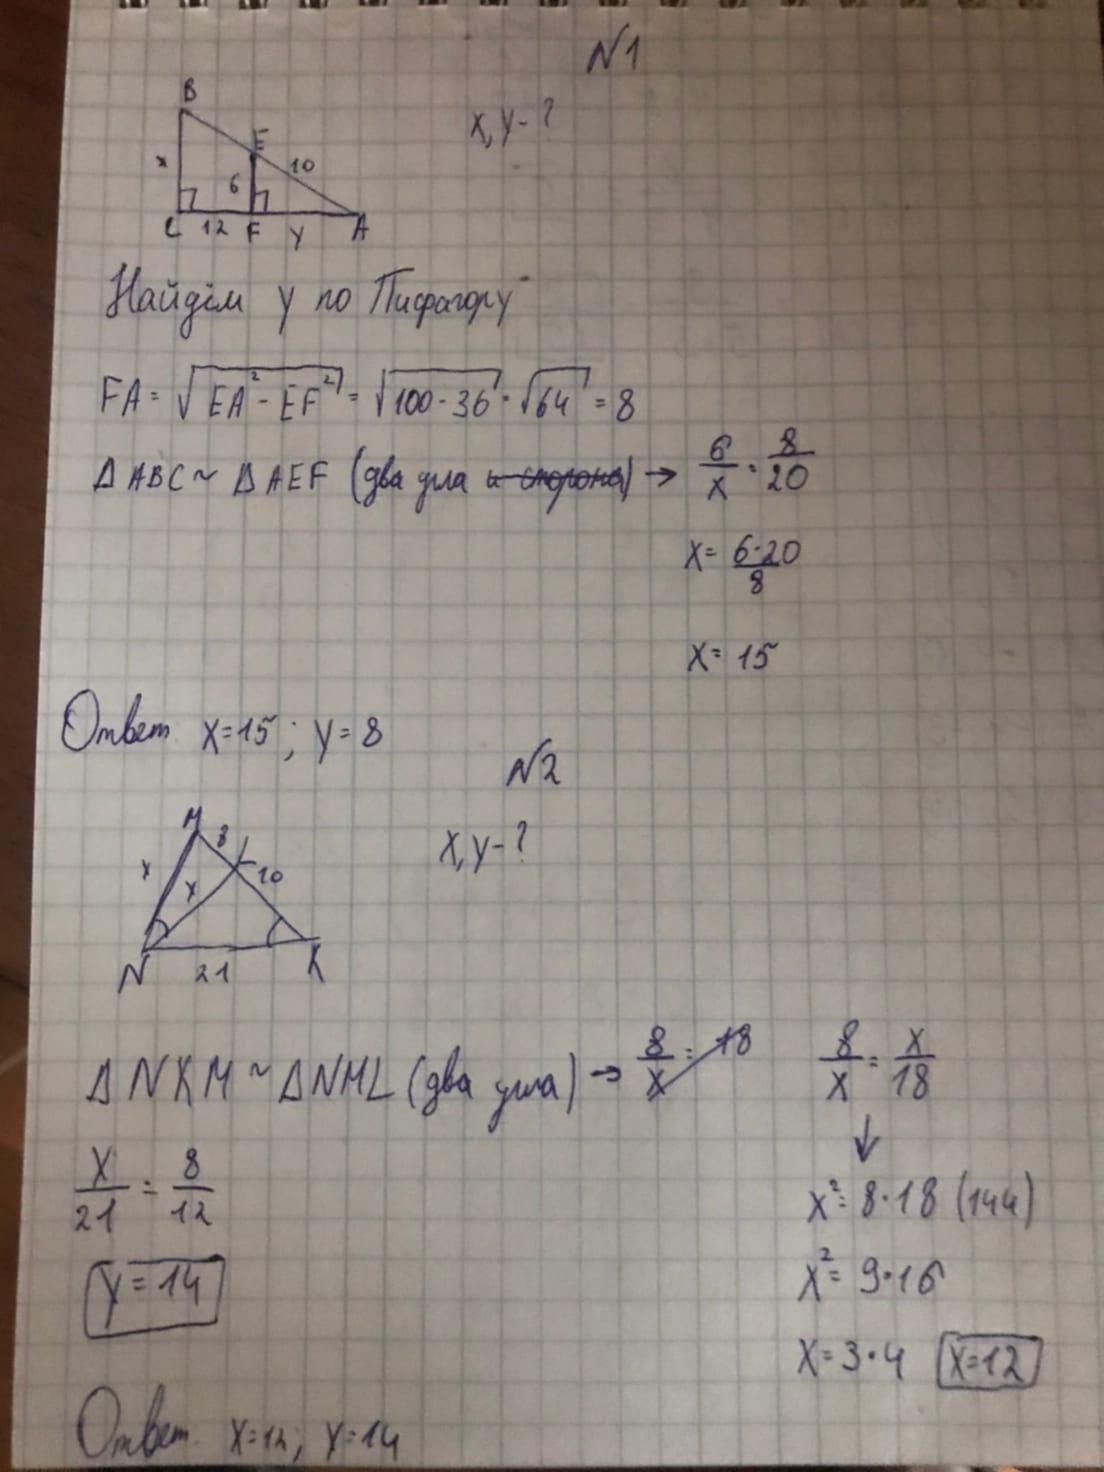 N1
B
x, y - ?
E
x 6 10
C 12 F y A
Найдём y по Пифагору
FA = √EA² - EF² = √100 - 36 = √64 = 8
Δ ABC ~ Δ AEF (два угла и сторона) → 6/x = 8/20
x = 6·20/8
x = 15
Ответ x = 15; y = 8
N2
M
8
x, y - ?
x y L 10
N 21 K
Δ NKM ~ Δ NML (два угла) → 8/x = 18 8/x = x/18
↓
y/21 = 8/12
x² = 8·18 (144)
y = 14
x² = 9·16
x = 3·4 x = 12
Ответ. x = 12; y = 14